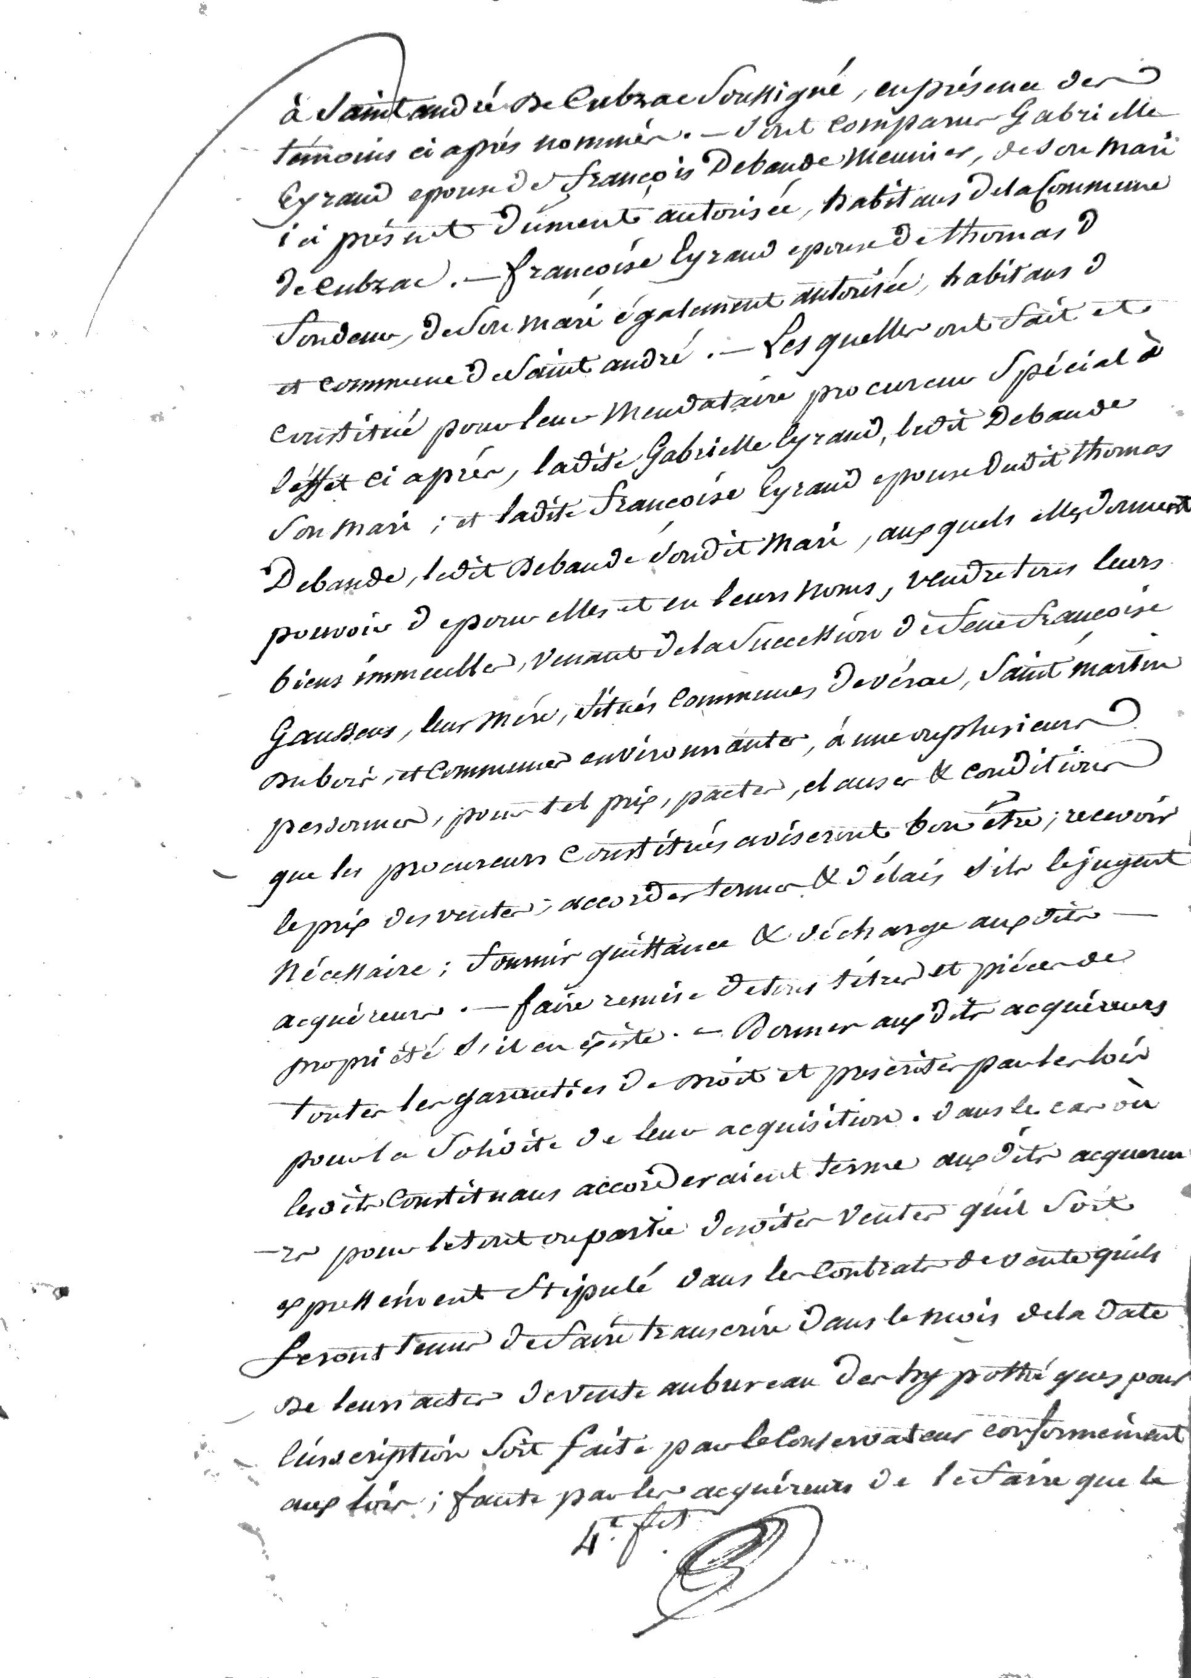 à Saint andré de Cubzac soussigné, en présence des
témoins ci après nommés. — Sont comparues Gabrielle
Eyraud epouse de françois Debande Meunier, de son Mari
ici présent dûment autorisée, habitans de la Commune
de Cubzac. — françoise Eyraud epouse de thomas
de son Mari également autorisée, habitans
et commune de Saint andré. — Lesquelles ont fait et
constitué pour leur Mendataire procureur Spécial à
l'éffet ci après, ladite Gabrielle Eyraud, ledit Debande
son mari ; et ladite françoise Eyraud epouse dudit thomas
Debande, ledit Debande sondit Mari, auxquels elles donnent
pouvoir de pour elles et en leurs noms, vendre tous leurs
biens immeubles, venant de la Succession de feue françoise
Gaussens, leur Mère, situés communes de vérac, Saint martin
du bois, et communes environnantes, à une ou plusieurs
personnes, pour tel prix, pactes, clauses & conditions
que les procureurs constitués aviseront bon être ; recevoir
le prix des ventes ; accorder termes & délais s'ils le jugent
Nécessaire ; fournir quittance & décharge auxdits —
acquéreurs. — faire remise de tous titres et pièces de
propriété s'il en éxiste. — Donner auxdits acquéreurs
toutes les garanties de droit et prescrites par les lois
pour la Solidité de leur acquisition. dans le cas où
lesdits Constituans accorderaient terme auxdits acquereu
—rs pour le tout ou partie desdites ventes qu'il soit
expressément stipulé dans les Contrats de vente qu'ils
seront tenus de faire transcrire dans le mois de la date
de leurs actes de vente au bureau des hypothéques pour
l'inscription soit faite par le Conservateur conformément
aux lois ; faute par les acquéreurs de le faire que le
4.e f.et